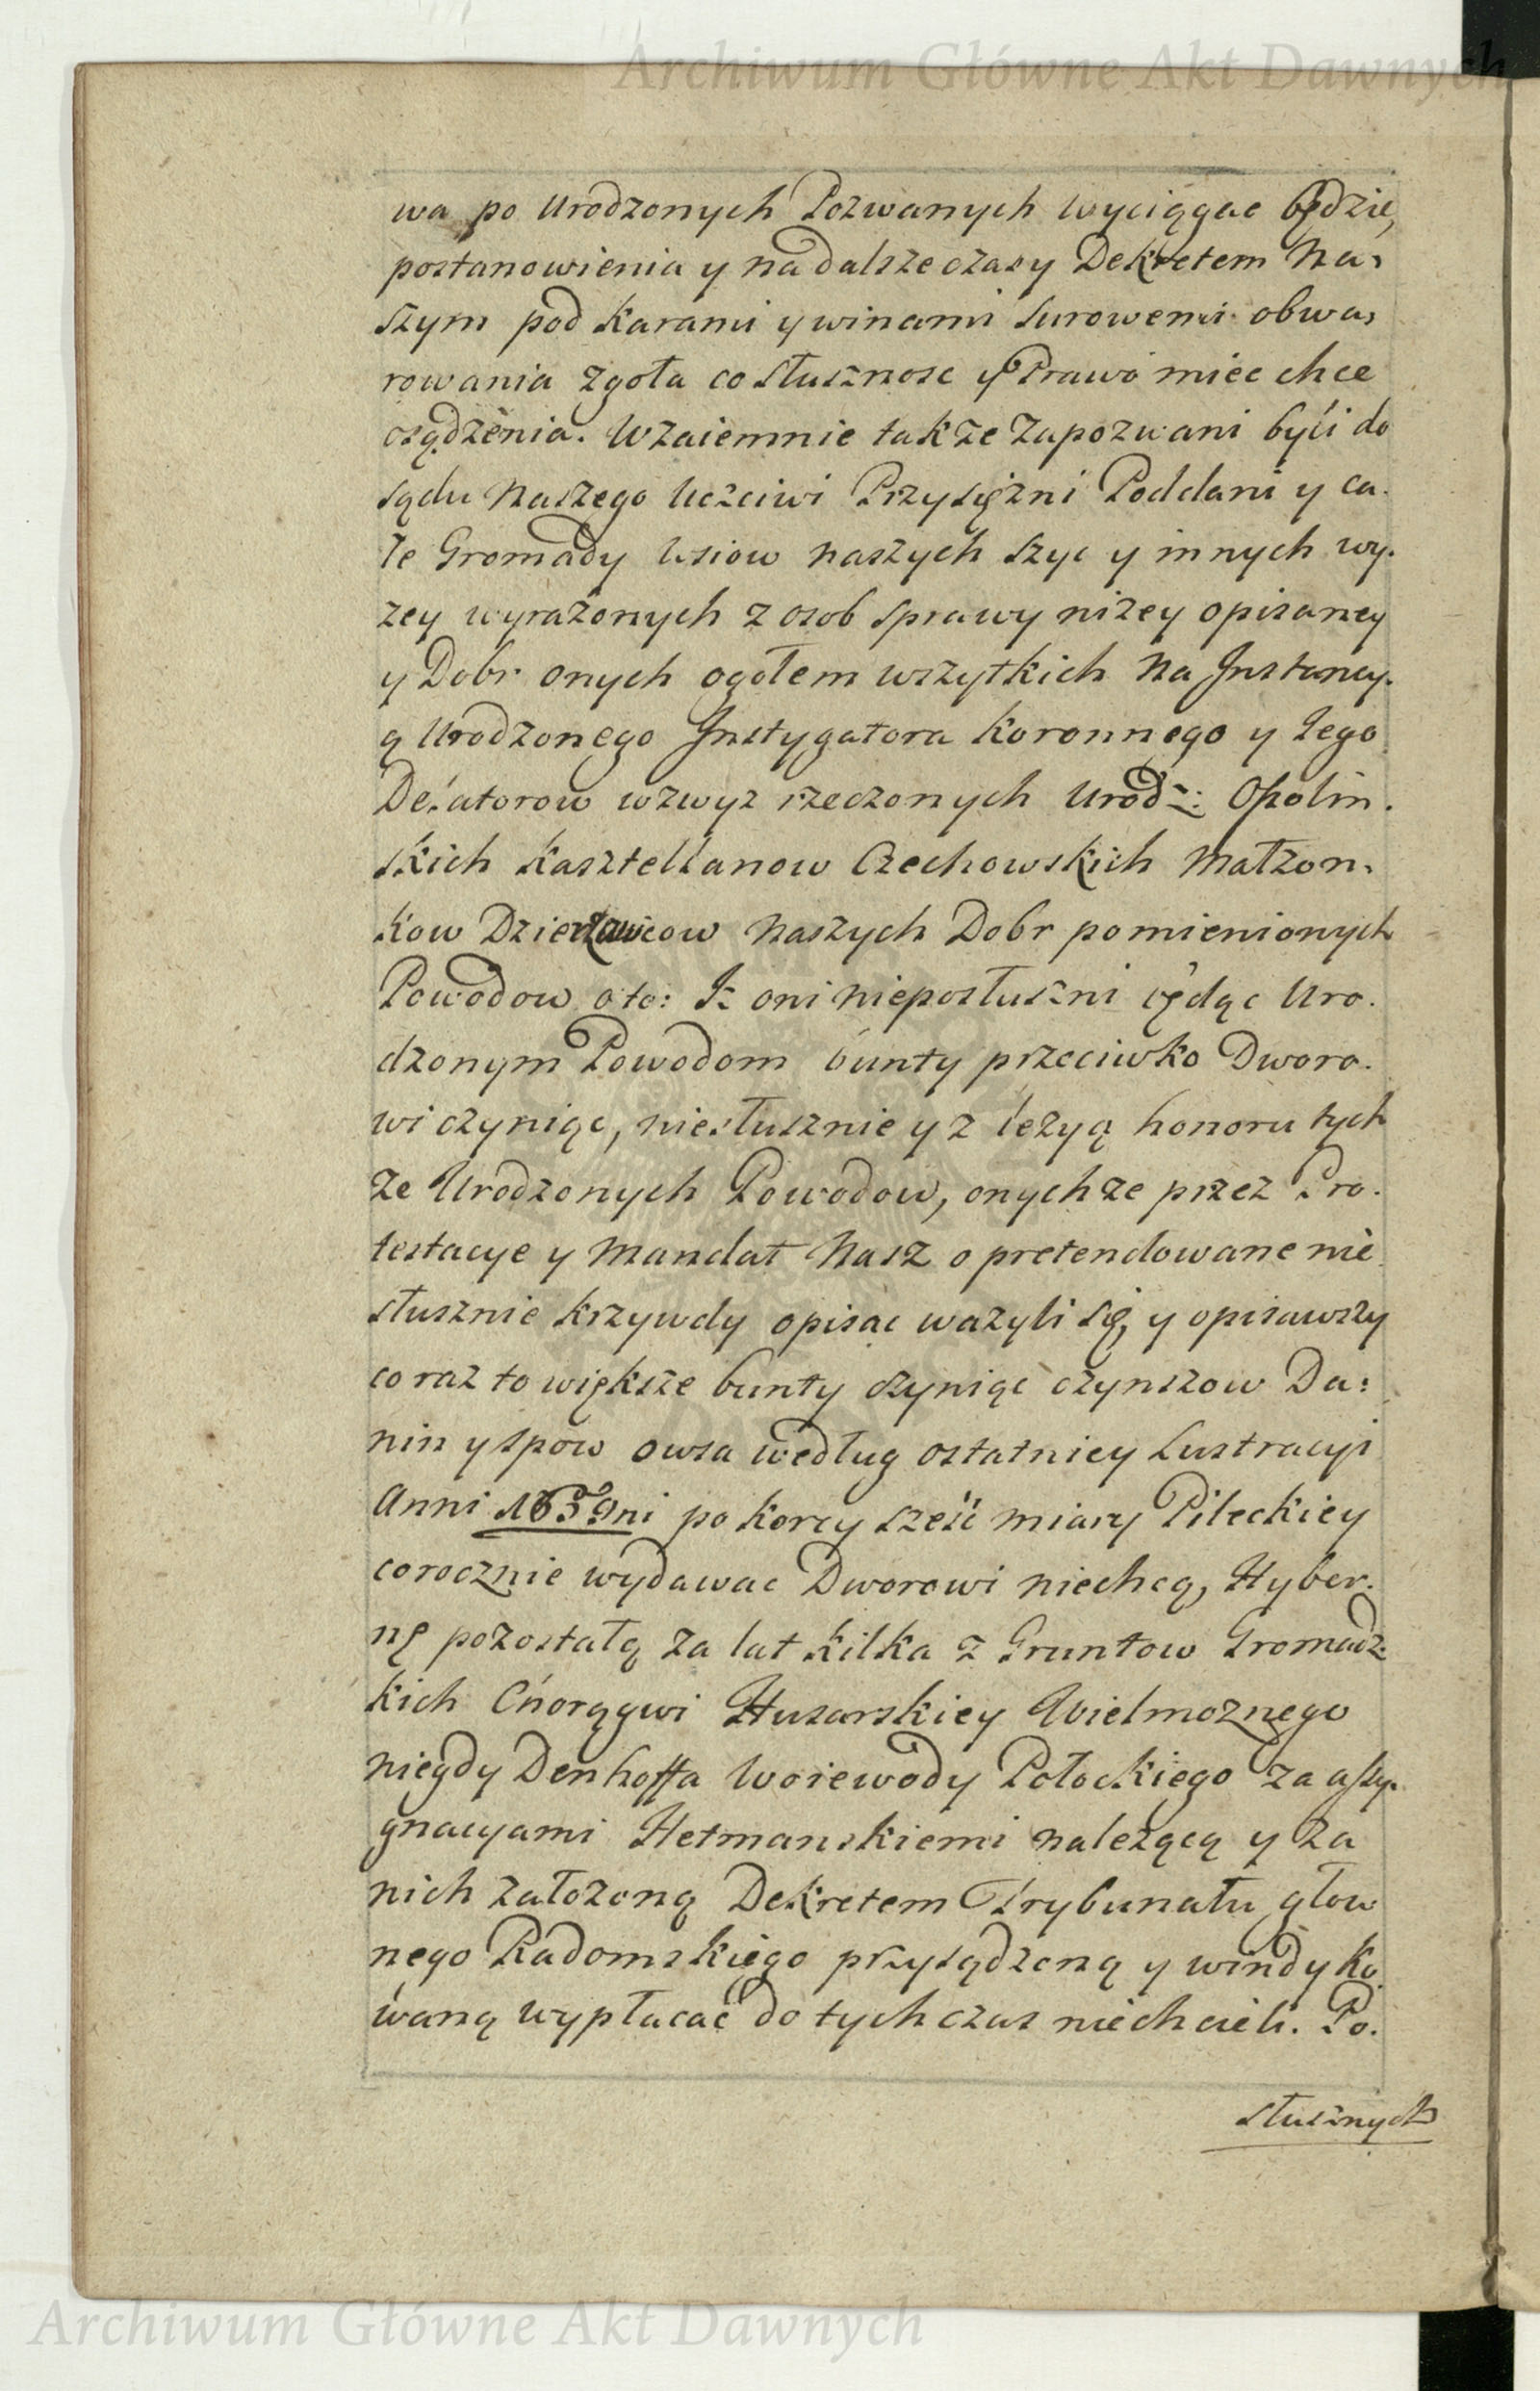 Archiwum Główne Akt Dawnych
wa po Urodzonych Pozwanych wyciągac będzie,
postanowienia y na dalsze czasy Dekretem Na,
szym pod karami y winami surowemi obwa,
rowania zgoła co słusznosc y Prawo miec chce
osądzenia. Wzaiemnie także zapozwani byli do
sądu Naszego Uczciwi Przysiężni Poddani y ca.
łe Gromady wsiow naszych Szyc y innych wy.
zey wyrażonych z osob sprawy niżey opisaney
y Dobr onych ogołem wszytkich Na Instancy.
ą Urodzonego Instygatora Koronnego y Jego
Delatorow wzwyż rzeczonych Urodz: Opolin.
skich Kasztellanow Czechowskich Małżon,
kow Dzierżawcow Naszych Dobr pomienionych
Powodow oto: Iż oni nieposłuszni będąc Uro.
dzonym Powodom bunty przeciwko Dworo.
wi czyniąc, niesłusznie y z leżyą honoru tych
że Urodzonych Powodow, onychże przez Pro.
testacye y Mandat Nasz o pretendowane nie
słusznie krzywdy opisac ważyli się, y opisawszy
coraz to większe bunty czyniąc czynszow Da:
nin y spow owsa według ostatniey Lustracyi
Anni 1659ni po korcy sześć miary Pileckiey
corocznie wydawac Dworowi niechcą, Hyber.
nę pozostałą za lat kilka z Gruntow Gromadz.
kich Chorągwi Husarskiey Wielmożnego
niegdy Denhoffa Woiewody Połockiego za assy.
gnacyami Hetmanskiemi należącą y za
nich założoną Dekretem Trybunału głow
nego Radomskiego przysądzoną y windyko
waną wypłacać do tych czas niechcieli. Po.
słusznych
Archiwum Główne Akt Dawnych